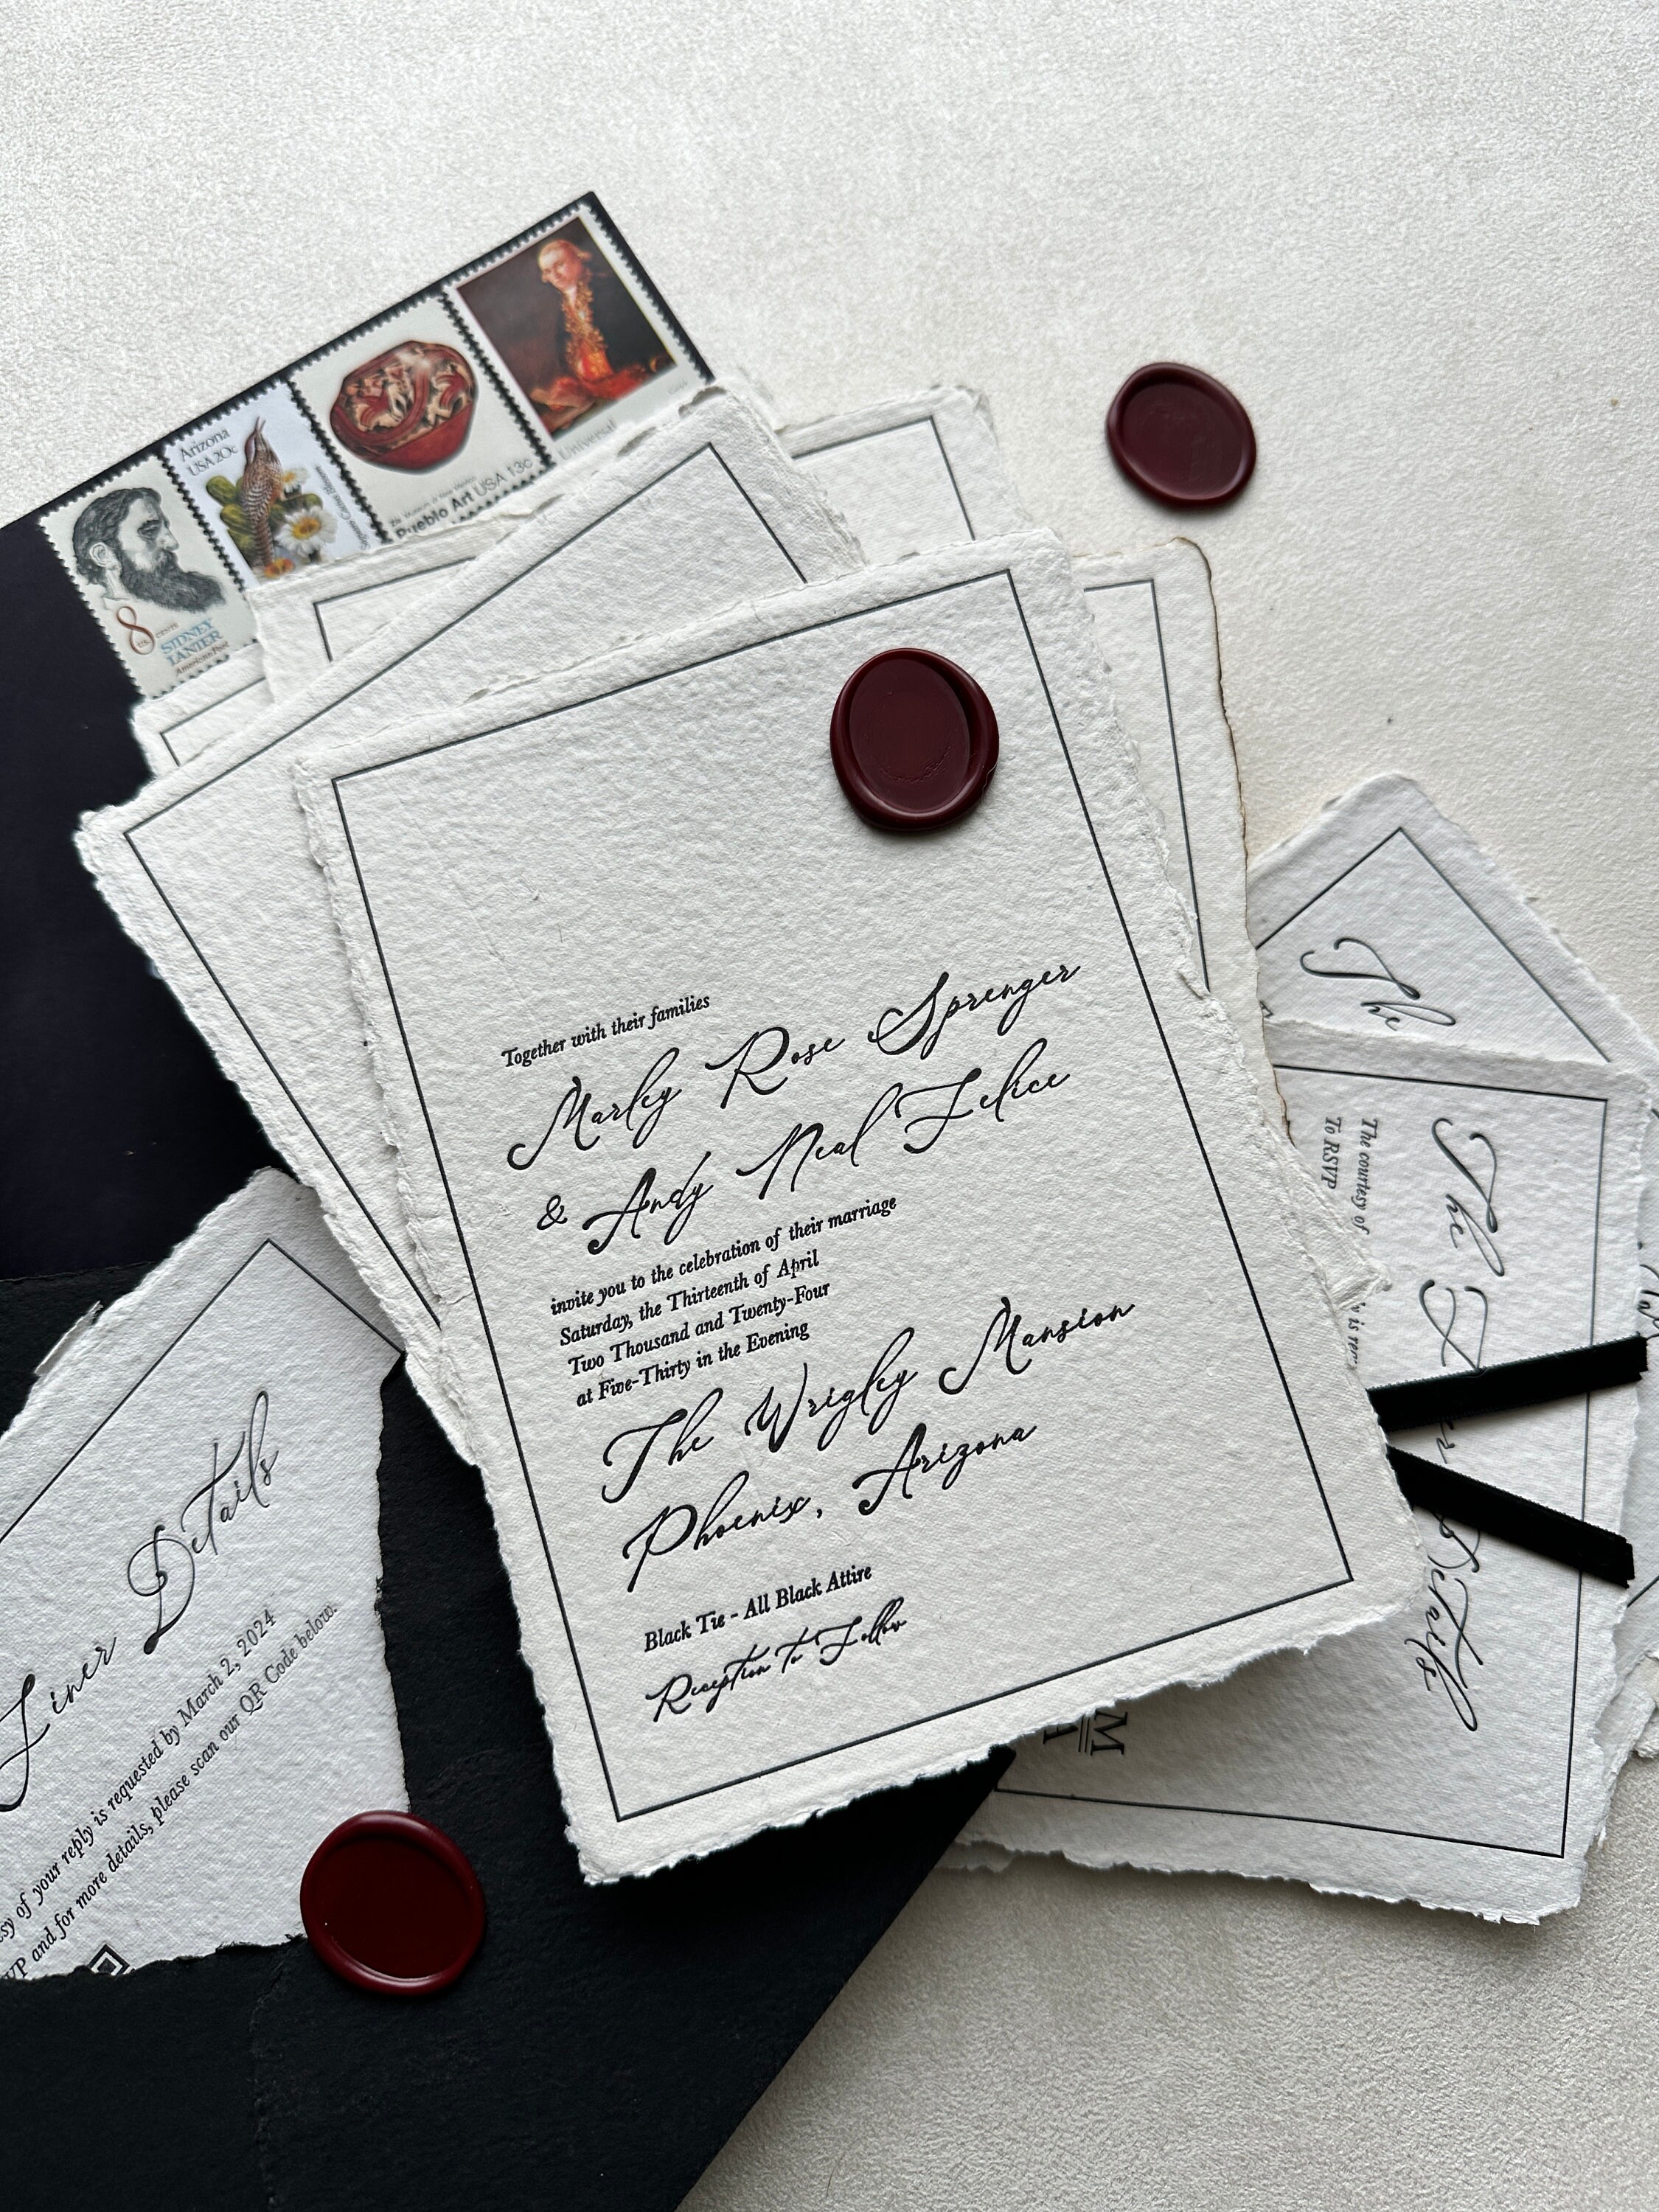 Arizona
USA 20c
Pueblo Art USA 13c
Universal
8
cents
SIDNEY
LANIER
American Poet
Together with their families
Marley Rose Sprenger
& Andy Neal Felice
invite you to the celebration of their marriage
Saturday, the Thirteenth of April
Two Thousand and Twenty-Four
at Five-Thirty in the Evening
The Wrigley Mansion
Phoenix, Arizona
Black Tie - All Black Attire
Reception To Follow
The
The Details
The courtesy of
To RSVP
M
A
Finer Details
of your reply is requested by March 2, 2024
and for more details, please scan our QR Code below.